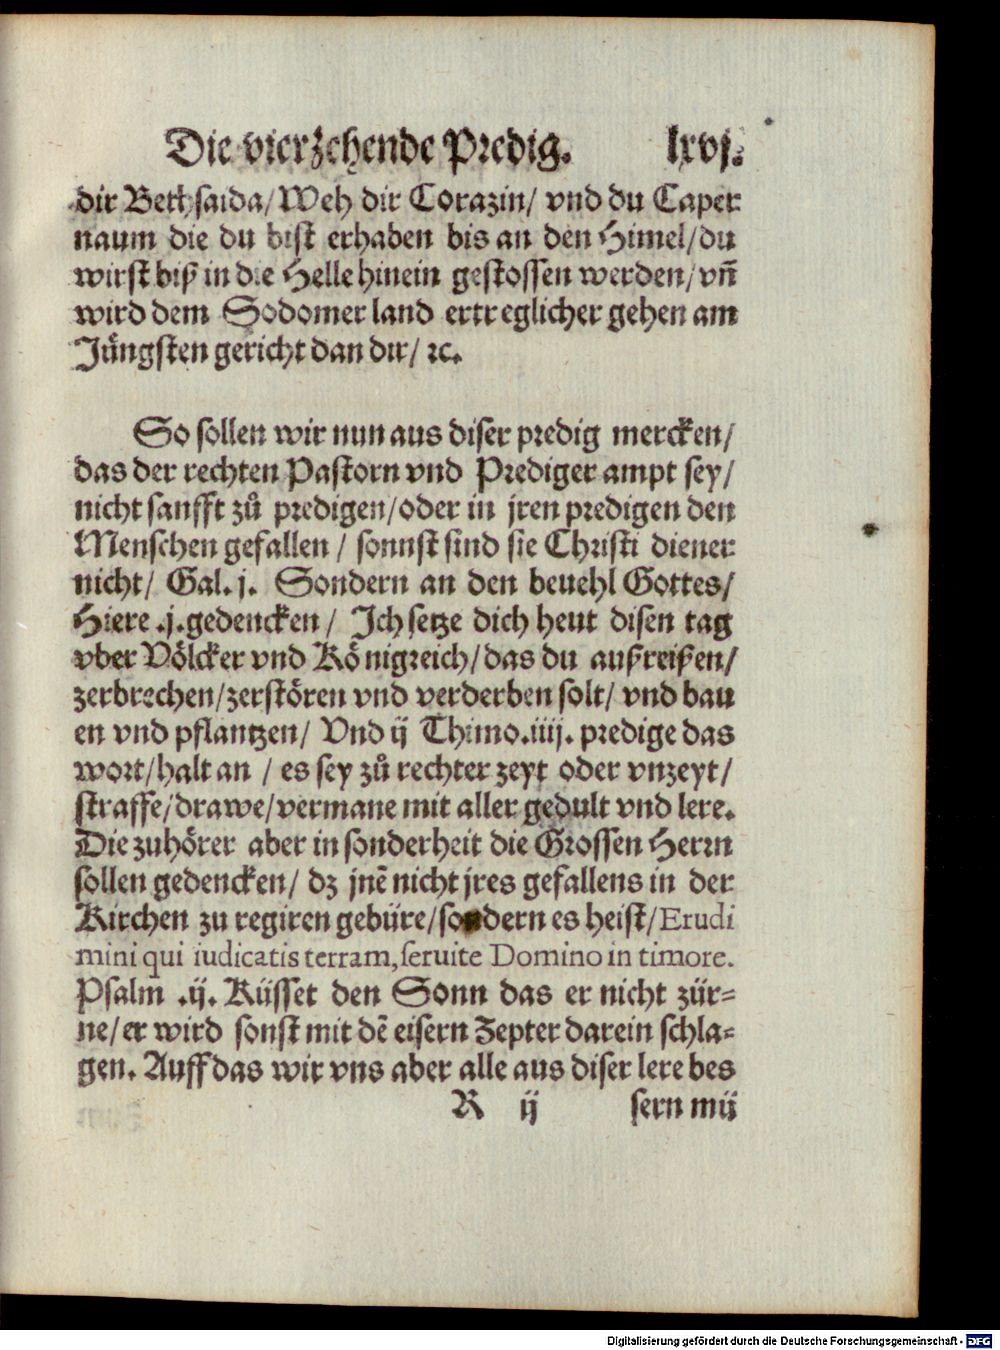 Die vierzehende Predig. lxvj.
dir Bethsaida/Weh dir Corazin/ vnd du Caper
naum die du bist erhaben bis an den Himel/du
wirst biß in die Helle hinein gestossen werden/vñ
wird dem Sodomer land ertreglicher gehen am
Jüngsten gericht dan dir/ ꝛc.
So sollen wir nun aus diser predig mercken/
das der rechten Pastorn vnd Prediger ampt sey/
nicht sanfft zů predigen/oder in jren predigen den
Menschen gefallen / sonnst sind sie Christi diener
nicht/ Gal. j. Sondern an den beuehl Gottes/
Hiere .j. gedencken / Ich setze dich heut disen tag
vber Völcker vnd Königreich/das du außreißen/
zerbrechen/zerstören vnd verderben solt/ vnd bau
en vnd pflantzen/ Vnd ij Thimo.iiij. predige das
wort/halt an / es sey zů rechter zeyt oder vnzeyt/
straffe/drawe/vermane mit aller gedult vnd lere.
Die zuhörer aber in sonderheit die Grossen Herrn
sollen gedencken/ dz jnẽ nicht jres gefallens in der
Kirchen zu regiren gebüre/sondern es heist/Erudi
mini qui iudicatis terram,seruite Domino in timore.
Psalm .ij. Küsset den Sonn das er nicht zür=
ne/er wird sonst mit dẽ eisern Zepter darein schla=
gen. Auff das wir vns aber alle aus diser lere bes
R ij sern mü
Digitalisierung gefördert durch die Deutsche Forschungsgemeinschaft - DFG